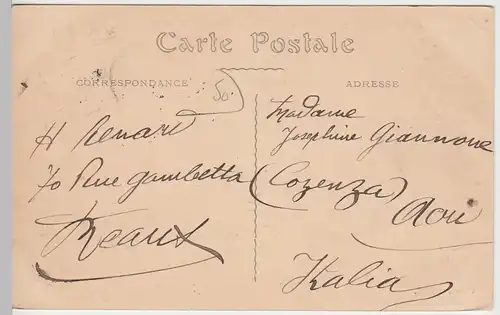 Carte Postale
CORRESPONDANCE
ADRESSE
50
H Renard
70 Rue Gambetta
Meaux
Madame
Josephine Giannone
(Cozenza)
Italia